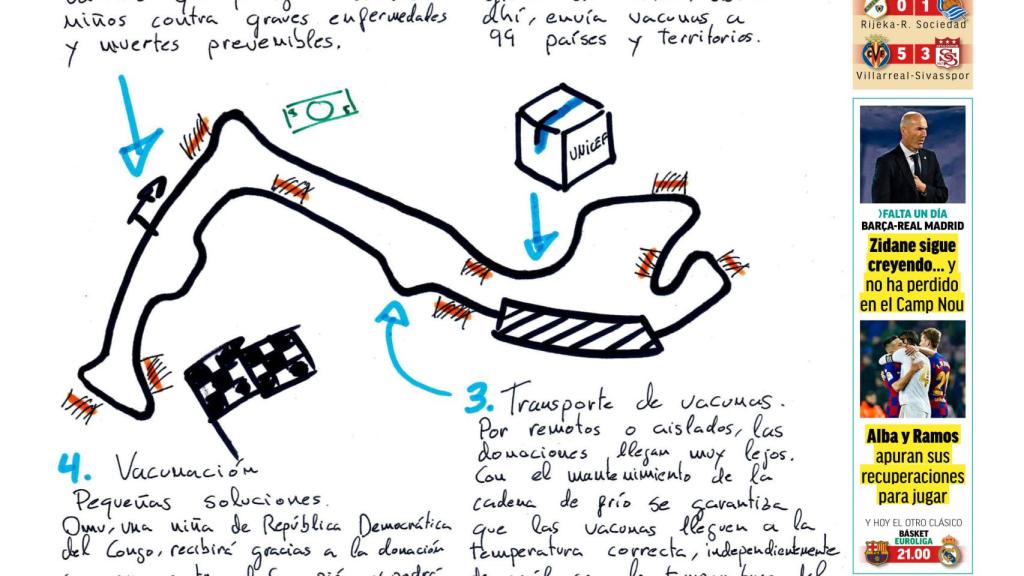 niños contra graves enfermedades
y muertes prevenibles.
ahí, envía vacunas a
99 países y territorios.
UNICEF
3. Transporte de vacunas.
Por remotos o aislados, las
donaciones llegan muy lejos.
Con el mantenimiento de la
cadena de frío se garantiza
que las vacunas lleguen a la
temperatura correcta, independientemente
4. Vacunación
Pequeñas soluciones.
Omu, una niña de República Democrática
del Congo, recibirá gracias a la donación
0 1
Rijeka-R. Sociedad
5 3
Villarreal-Sivasspor
>FALTA UN DÍA
BARÇA-REAL MADRID
Zidane sigue
creyendo... y
no ha perdido
en el Camp Nou
Alba y Ramos
apuran sus
recuperaciones
para jugar
Y HOY EL OTRO CLÁSICO
BÁSKET
EUROLIGA
21.00